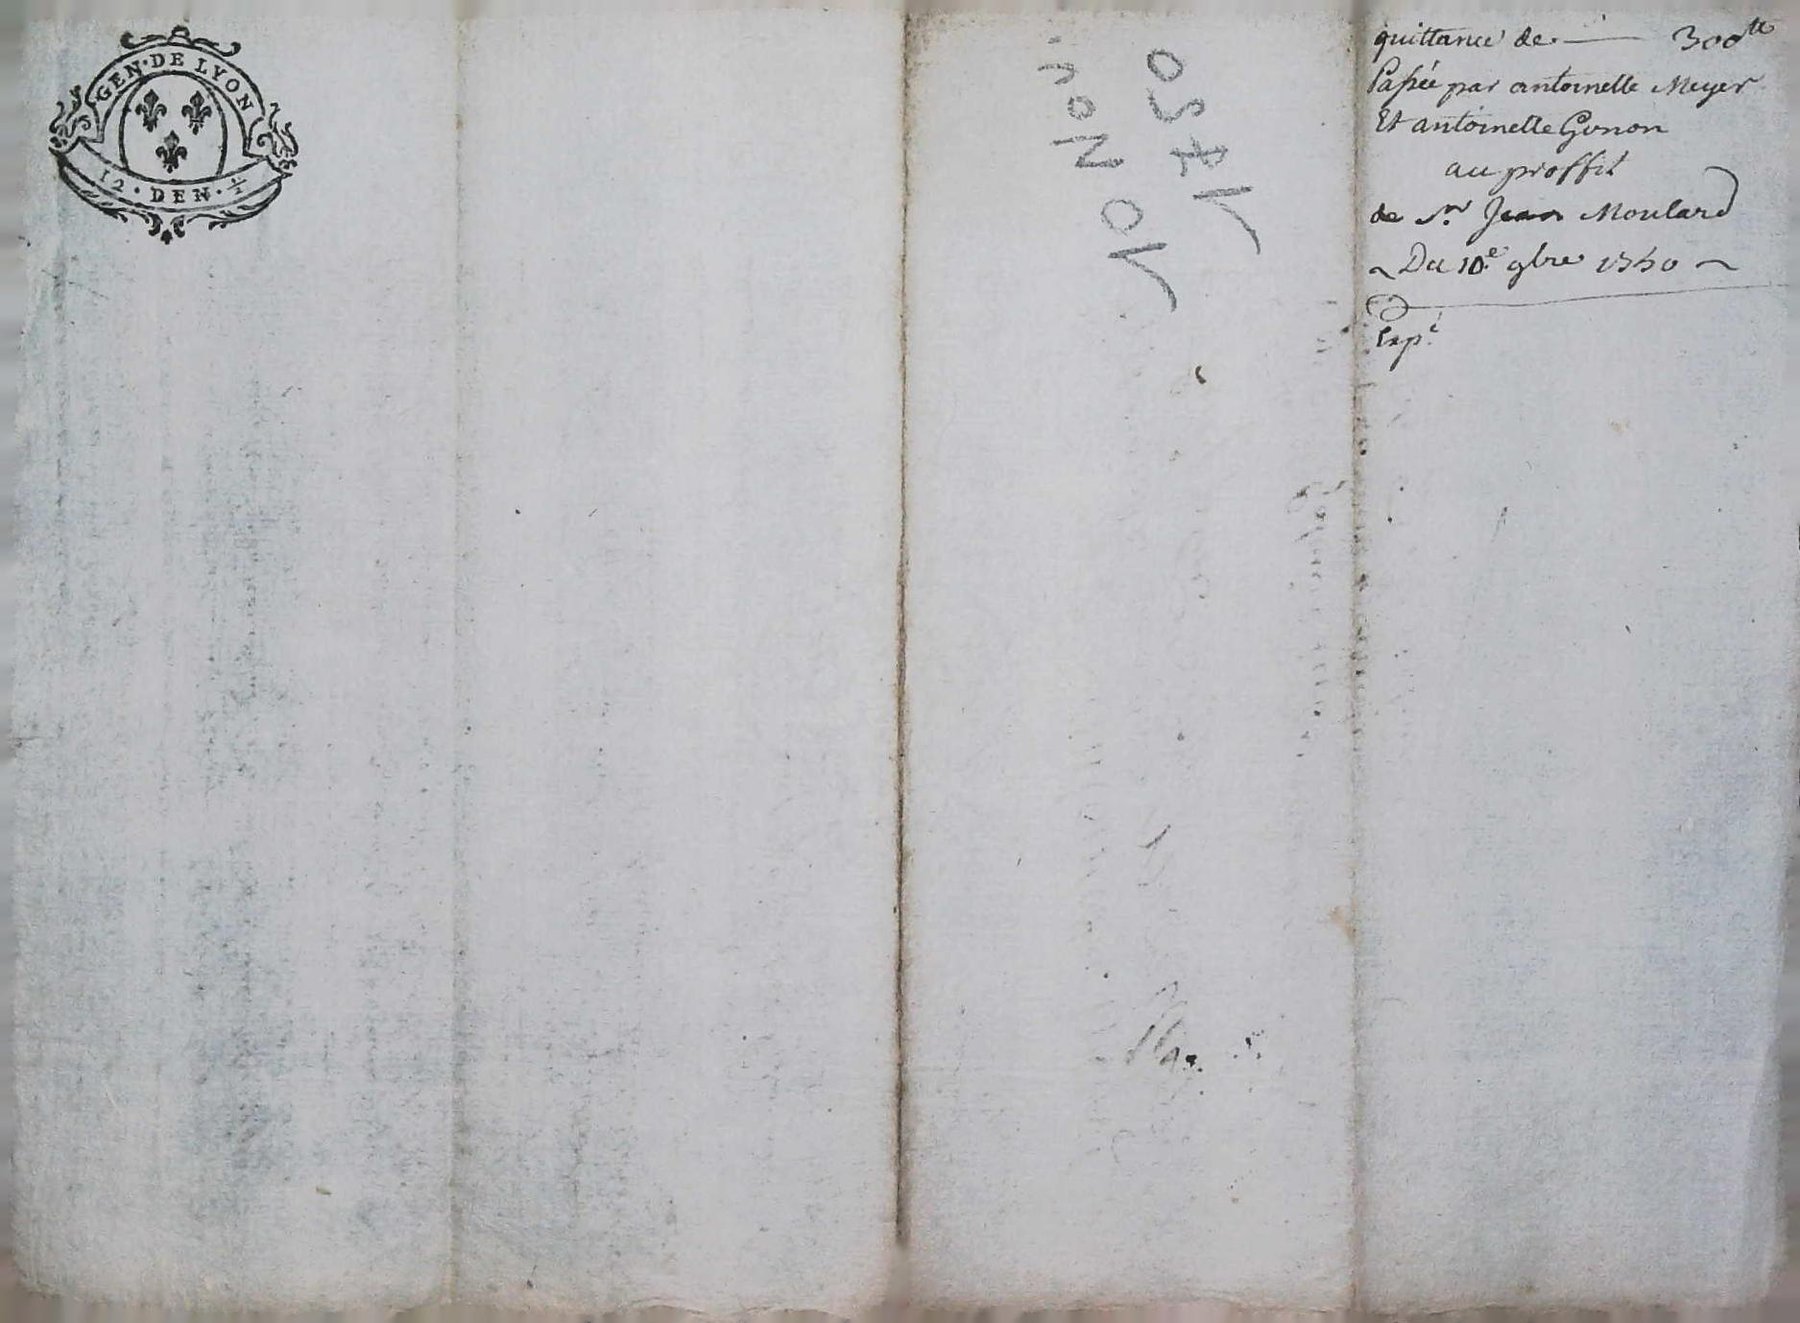 GEN·DE LYON
12·DEN·½
10 Nov.
1750
quittance de 300ᵗᵗ
Passée par antoinette Meyer
Et antoinette Gonon
au proffit
de Sr. Jean Moulard
Du 10.e 9bre 1750
Exp.é